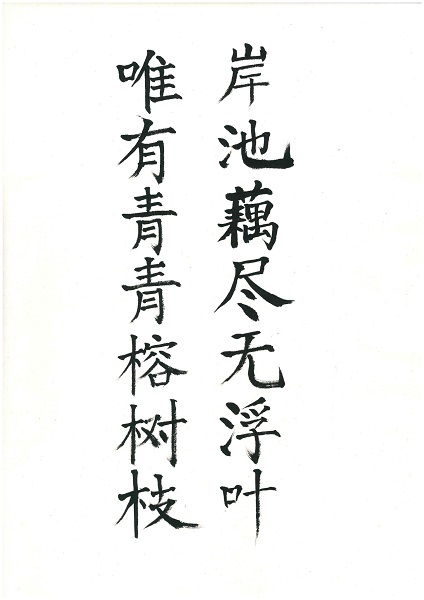 岸池藕尽无浮叶
唯有青青榕树枝